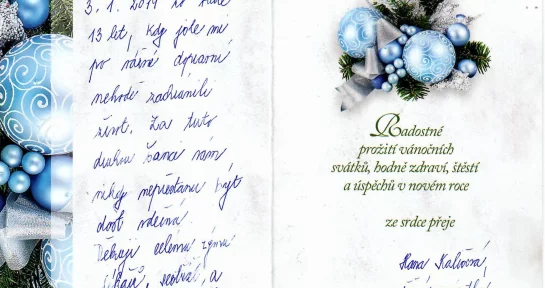 3. 1. 2019 to bude
13 let, kdy jste mi
po vážné dopravní
nehodě zachránili
život. Za tuto
druhou šanci Vám
nikdy nepřestanu být
dost vděčná.
Děkuji celému týmu
lékařů, sester, a
Radostné
prožití vánočních
svátků, hodně zdraví, štěstí
a úspěchů v novém roce
ze srdce přeje
Hana